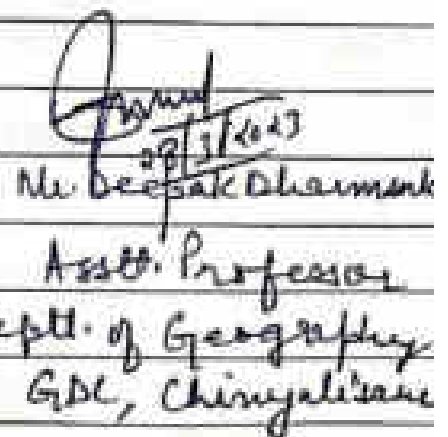 08/3/2023
Mr. Deepak Dharmank
Asstt. Professor
eptt. of Geography
GDC, Chinyalisaur